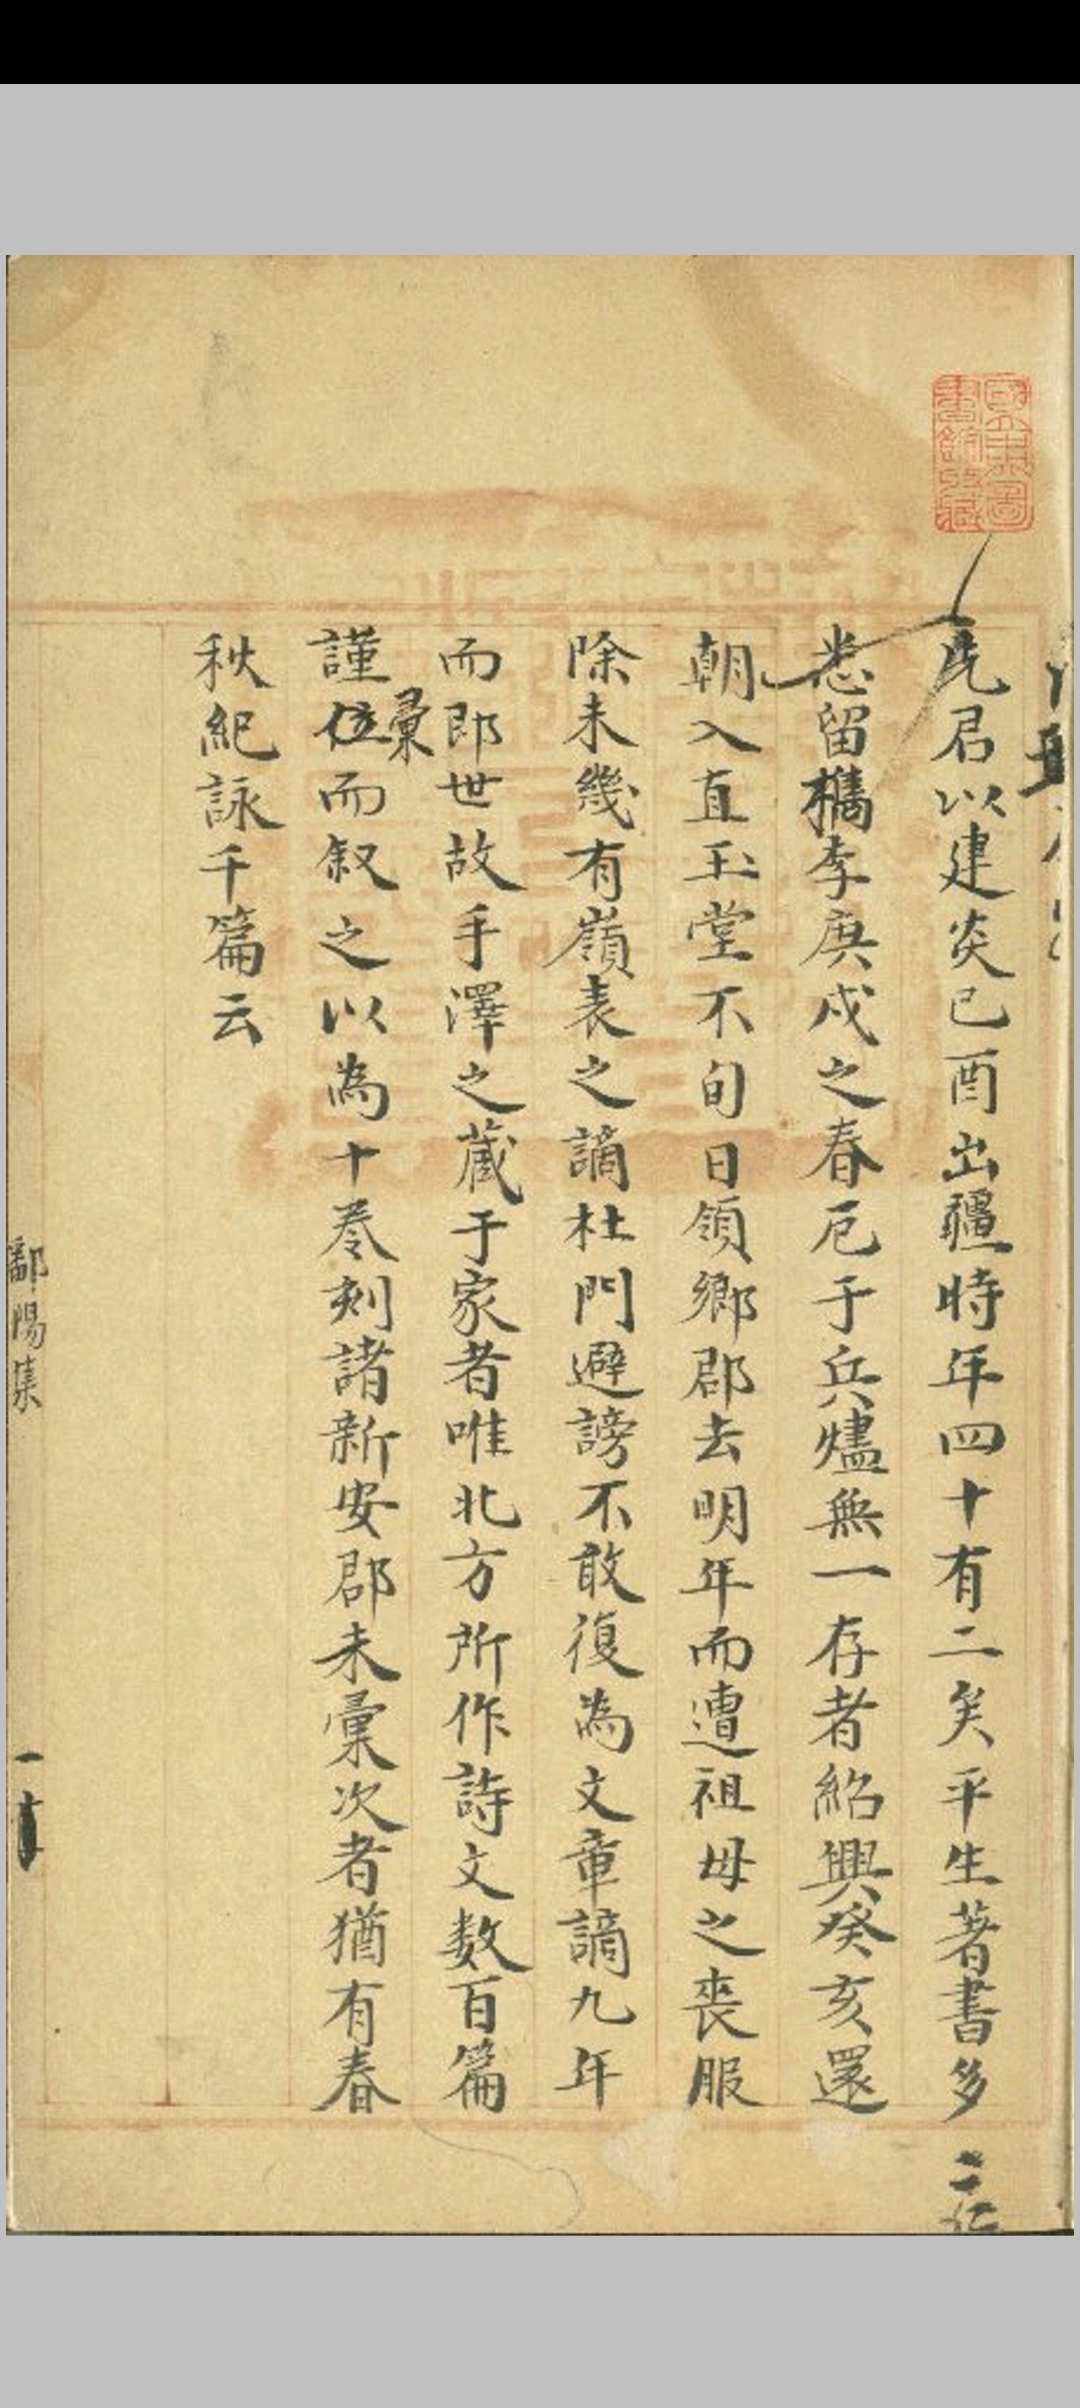 國立北平圖書館收藏
先君以建炎己酉出疆時年四十有二矣平生著書多
悉留檇李庚戌之春厄于兵燼無一存者紹興癸亥還
朝入直玉堂不旬日領鄉郡去明年而遭祖母之喪服
除未幾有嶺表之謫杜門避謗不敢復為文章謫九年
而即世故手澤之蔵于家者唯北方所作詩文数百篇
謹位彙而叙之以為十卷刻諸新安郡未彙次者猶有春
秋紀詠千篇云
鄱陽集
一